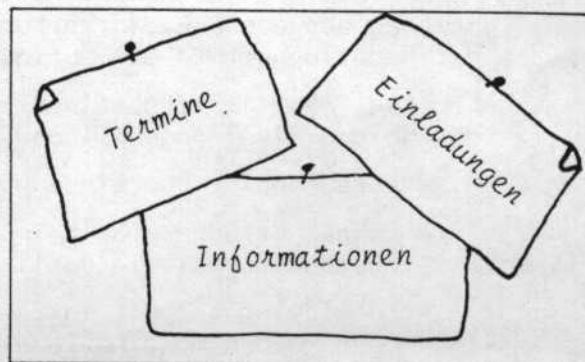 Termine
Einladungen
Informationen